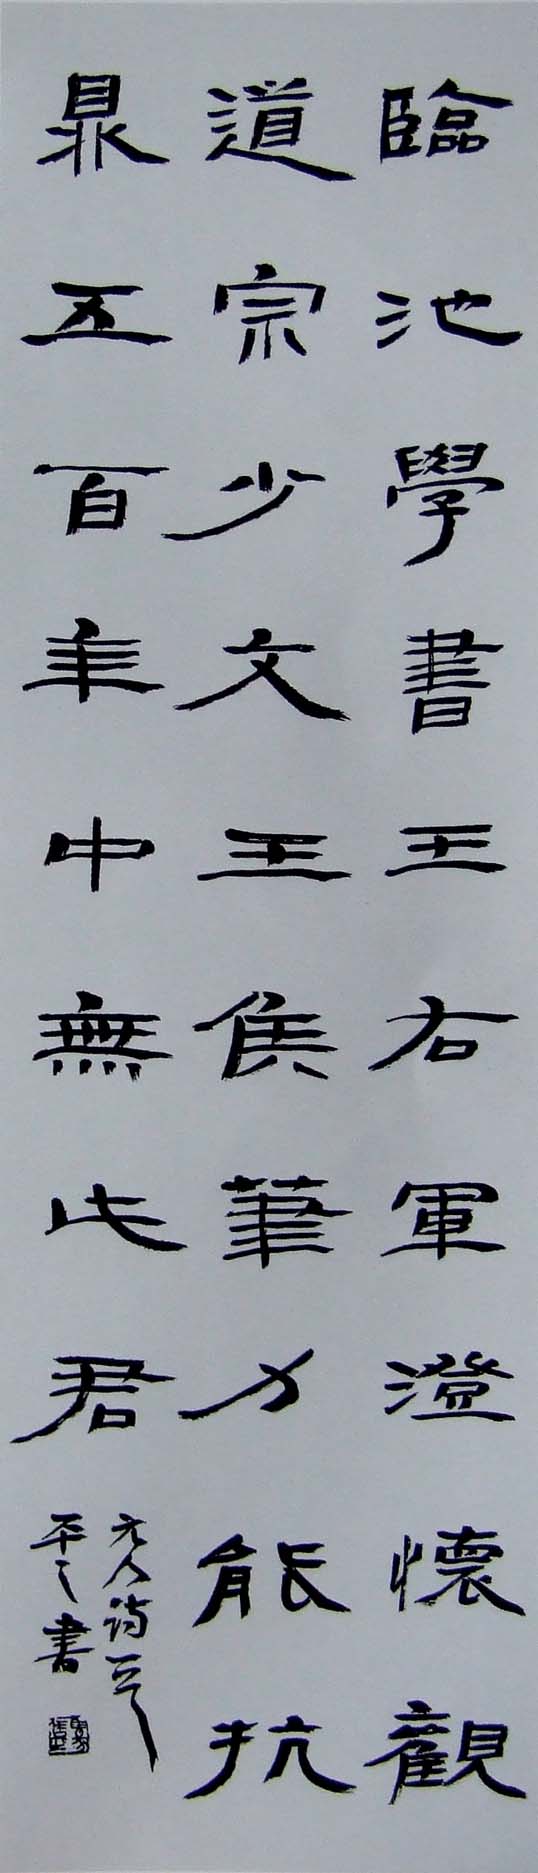 臨池學書王右軍澄懷觀
道宗少文王侯筆力能抗
鼎五百年中無此君
元人詩一首
平之書